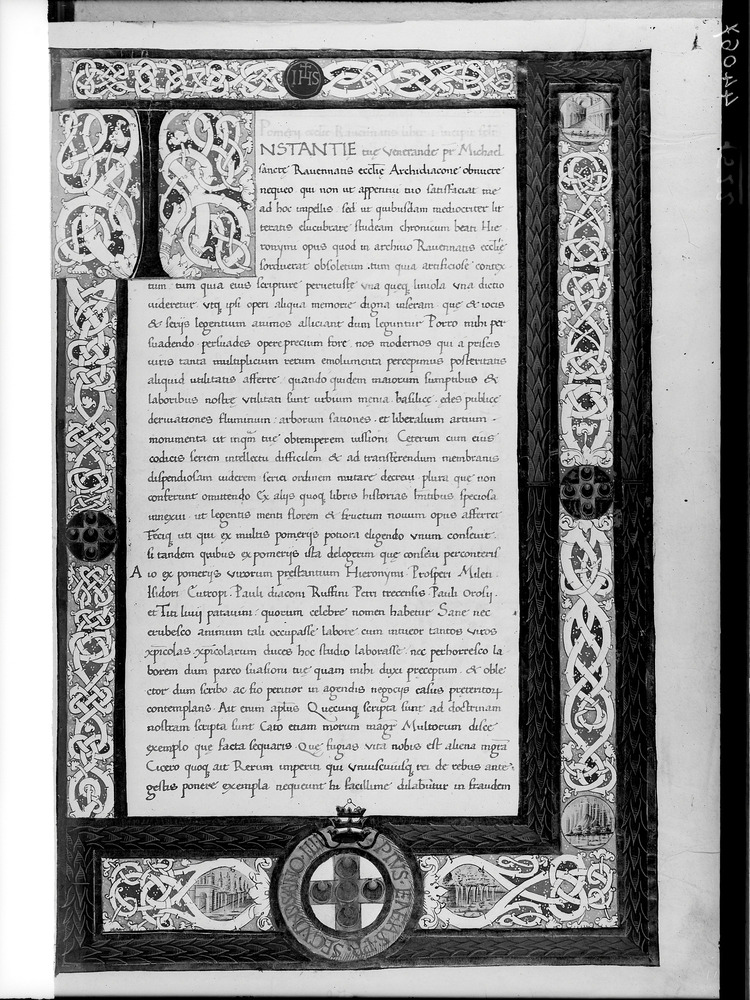 IHS
Pomerij ecclie Rauennatis liber
INSTANTIE tue Venerande pr Michael
sancte Rauennatis ecclie Archidiacone obtuere
nequeo qui non ut appetitui tuo satisfaciat me
ad hoc impellis sed ut quibusdam mediocriter lit
teratis elucubrare studeam chronicum beati Hie
ronymi opus quod in archiuo Rauennatis ecclie
sorduerat obsoletum tum quia artificiose contex
tum tum quia eius scripture peruetuste vna queq liniola vna dictio
uideretur utq ipsi operi aliqua memorie digna inseram que & iocis
& serijs legentium animos alliciant dum leguntur Porro mihi per
suadendo persuades opere precium fore nos modernos qui a priscis
uiris tanta multiplicium rerum emolumenta percepimus posteritatis
aliquid utilitatis afferre quando quidem maiorum sumptibus &
laboribus nostre vtilitati sunt urbium menia basilice edes publice
deriuationes fluminum arborum sationes et liberalium artium
monumenta ut inqm tue obtemperem iussioni Ceterum cum eius
codicis seriem intellectu difficilem & ad transferendum membranis
dispendiosam uiderem seriei ordinem mutare decreui plura que non
conferunt omittendo Ex alijs quoq libris historias limitibus speciosa
innexui ut legentis menti florem & fructum nouum opus afferret
Feciq uti qui ex multis pomerijs potiora eligendo vnum conseuit
si tandem quibus ex pomerijs ista delegerim que conseui perconteris
Aio ex pomerijs virorum prestantium Hieronymi Prosperi Mileti
Isidori Eutropi Pauli diaconi Ruffini Petri trecensis Pauli Orosij
et Titi liuij patauini quorum celebre nomen habetur Sane nec
erubesco animum tali occupasse labore cum intueor tantos viros
xpicolas xpicolarum duces hoc studio laborasse nec perhorresco la
borem dum pareo suasioni tue quam mihi duxi preceptum & oble
ctor dum scribo ac fio peritior in agendis negocijs casus preteritoꝝ
contemplans Ait enim aplus Quecunq scripta sunt ad doctrinam
nostram scripta sunt Cato etiam morum magr Multorum disce
exemplo que facta sequaris Que fugias vita nobis est aliena mgra
Cicero quoq ait Rerum imperiti qui vniuscuiusq rei de rebus ante
gestis ponere exempla nequeunt hi facillime dilabuntur in fraudem
PIVS